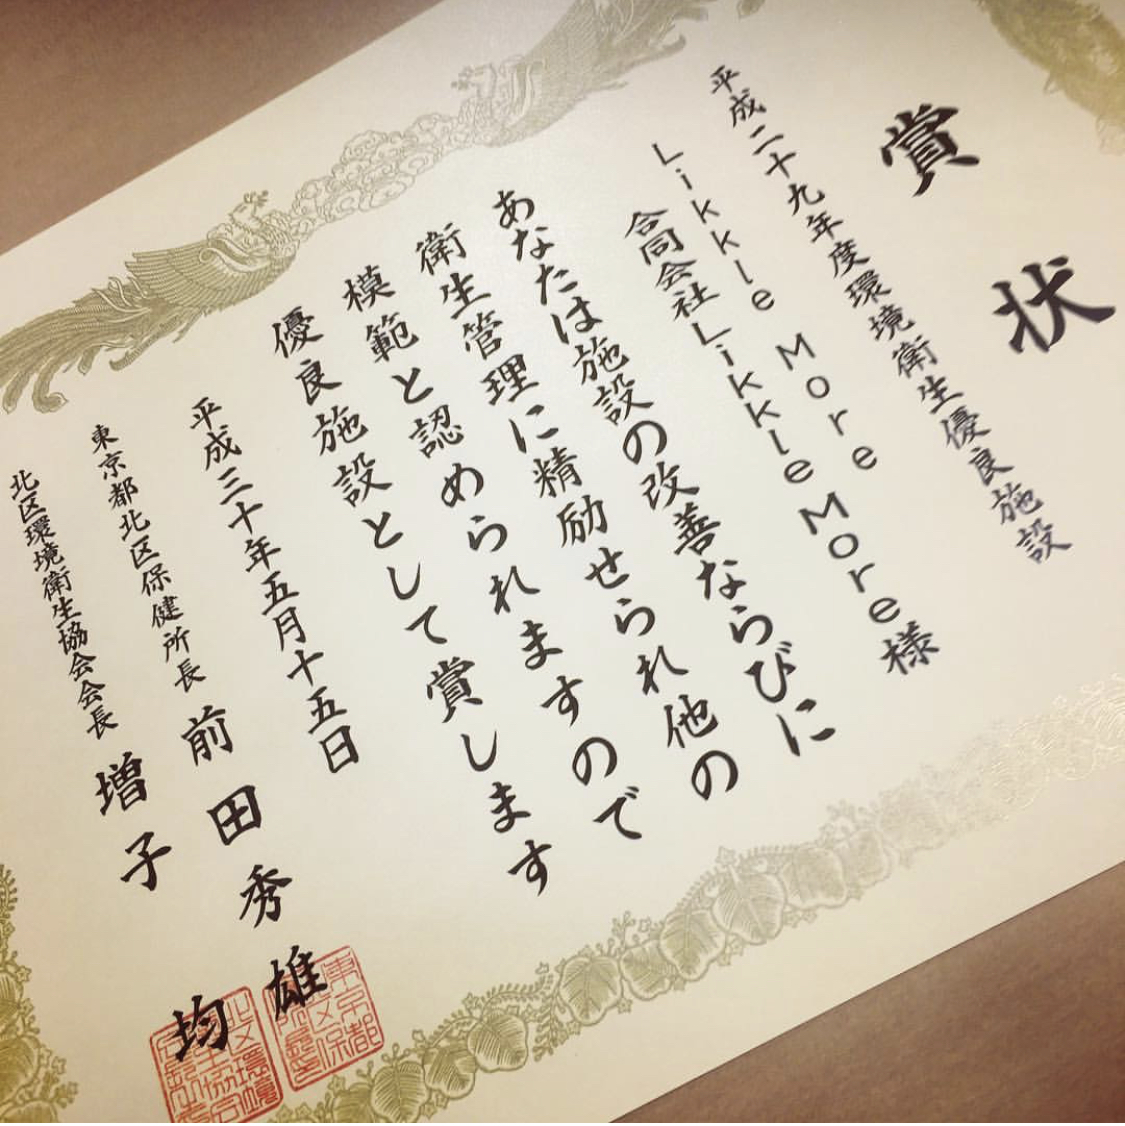 賞状
平成二十九年度環境衛生優良施設
Likkle More
合同会社Likkle More様
あなたは施設の改善ならびに
衛生管理に精励せられ他の
模範と認められますので
優良施設として賞します
平成三十年五月十五日
東京都北区保健所長 前田秀雄
北区環境衛生協会会長 増子均